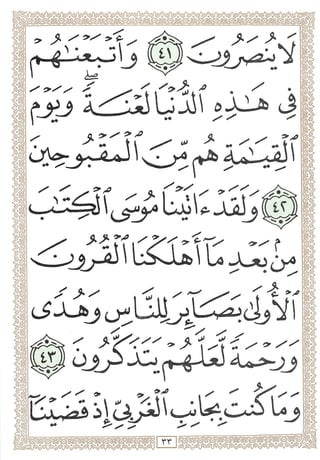 لَا يُنصَرُونَ ٤١ وَأَتْبَعْنَٰهُمْ
فِى هَٰذِهِ ٱلدُّنْيَا لَعْنَةً ۖ وَيَوْمَ
ٱلْقِيَٰمَةِ هُم مِّنَ ٱلْمَقْبُوحِينَ
٤٢ وَلَقَدْ ءَاتَيْنَا مُوسَى ٱلْكِتَٰبَ
مِنۢ بَعْدِ مَآ أَهْلَكْنَا ٱلْقُرُونَ
ٱلْأُولَىٰ بَصَآئِرَ لِلنَّاسِ وَهُدًى
وَرَحْمَةً لَّعَلَّهُمْ يَتَذَكَّرُونَ ٤٣
وَمَا كُنتَ بِجَانِبِ ٱلْغَرْبِىِّ إِذْ قَضَيْنَآ
٣٣